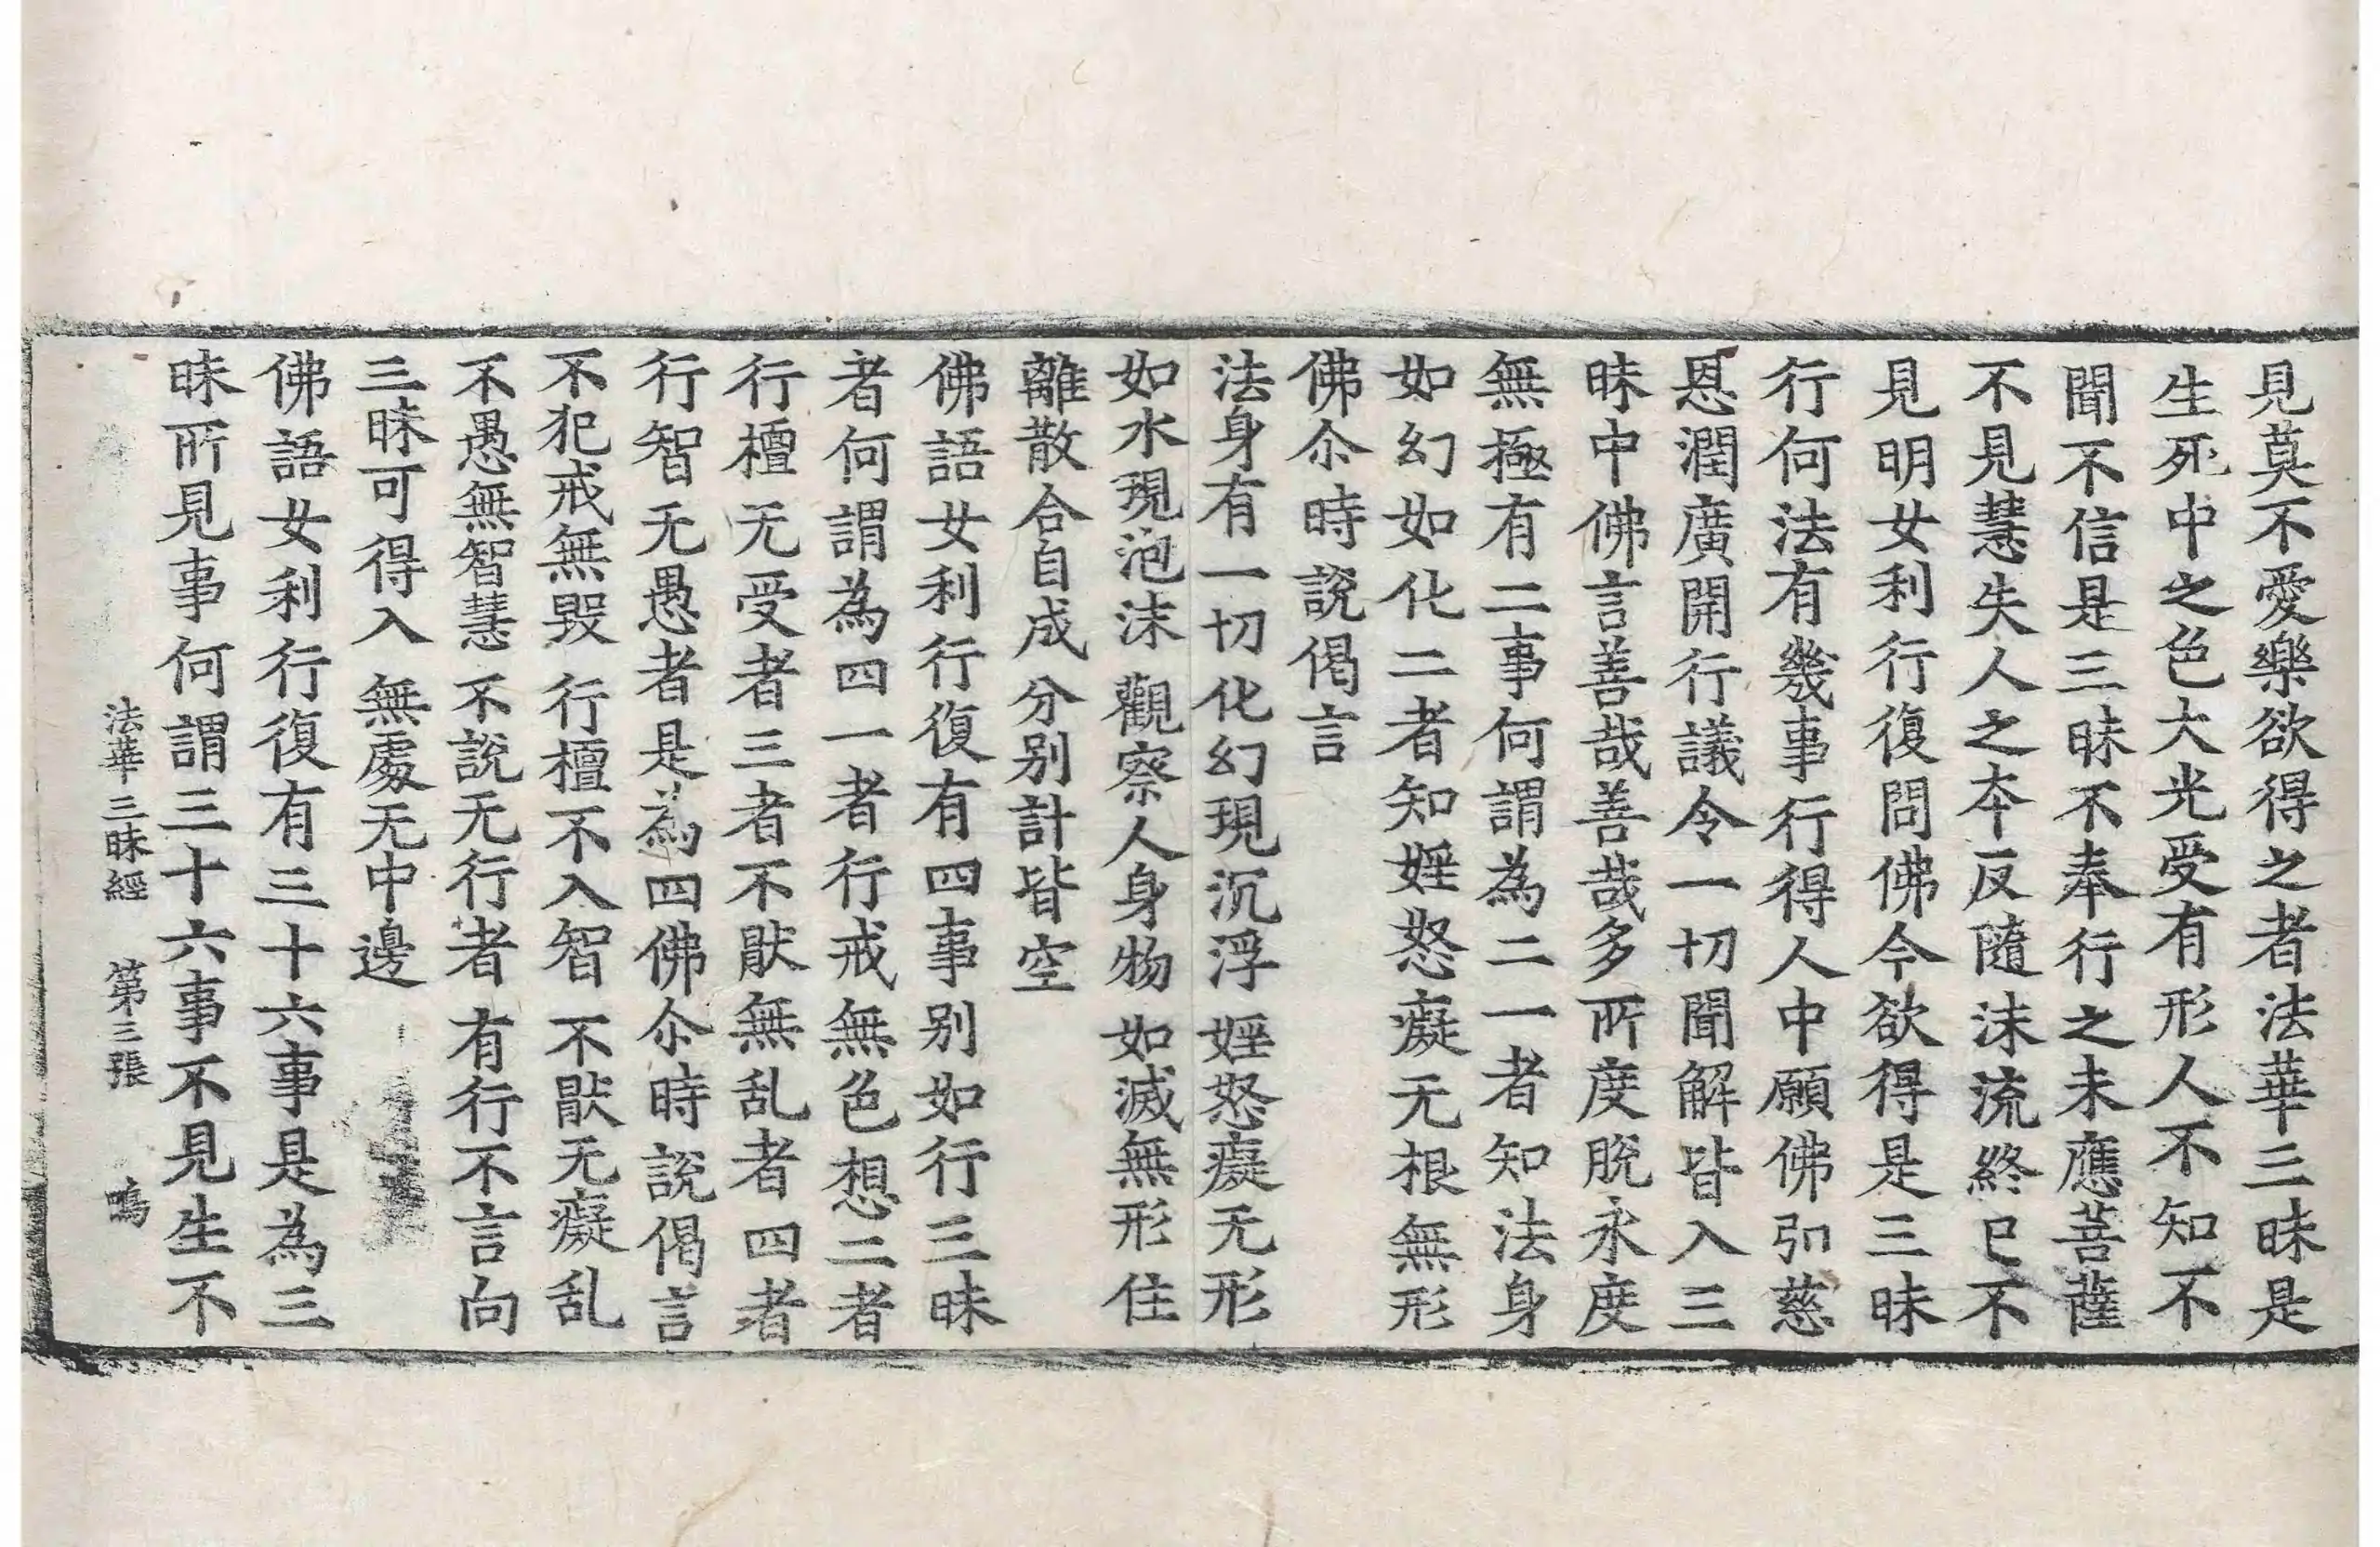 見莫不愛樂欲得之者法華三昧是
生死中之色大光受有形人不知不
聞不信是三昧不奉行之未應菩薩
不見慧失人之本反隨沫流終已不
見明女利行復問佛今欲得是三昧
行何法有幾事行得人中願佛引慈
恩潤廣開行議令一切聞解皆入三
昧中佛言善哉善哉多所度脫永度
無極有二事何謂為二一者知法身
如幻如化二者知婬怒癡无根無形
佛尒時說偈言
法身有一切化幻現沉浮婬怒癡无形
如水現泡沫觀察人身物如滅無形住
離散合自成分別計皆空
佛語女利行復有四事別如行三昧
者何謂為四一者行戒無色想二者
行檀无受者三者不猒無乱者四者
行智无愚者是為四佛尒時說偈言
不犯戒無毀行檀不入智不猒无癡乱
不愚無智慧不說无行者有行不言向
三昧可得入無處无中邊
佛語女利行復有三十六事是為三
昧所見事何謂三十六事不見生不
法華三昧經 第三張 鳴